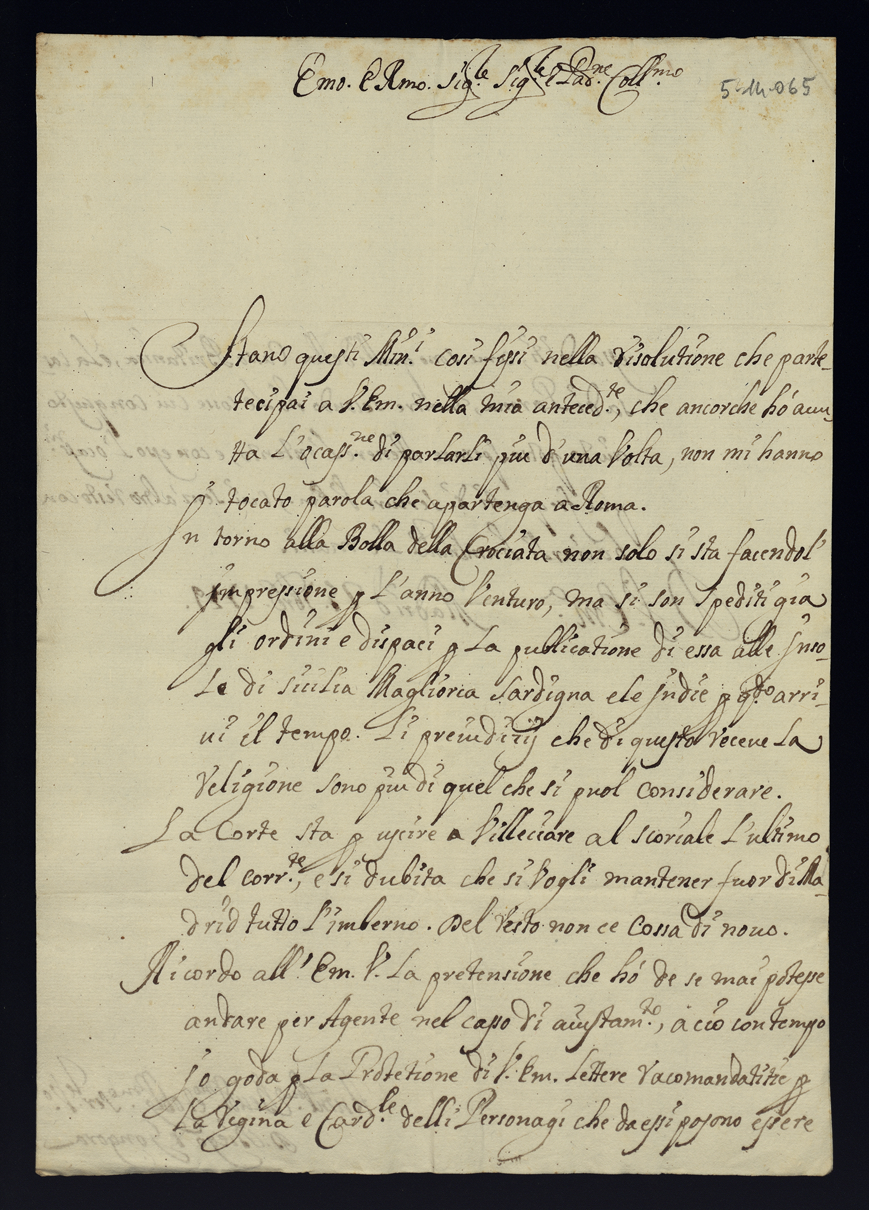 Emo. e Rmo. Sig.re Sig.re e Pad.ne Coll.mo
5-14-065
Stano questi Min.i cosi fissi nella risolutione che parte-
tecipai a V. Em. nella mia anteced.te, che ancorche hò auu-
tta L'ocass.ne di parlarli piu d'una Volta, non mi hanno
tocato parola che apartenga a Roma.
In torno alla Bolla della Crociata non solo si sta facendol'
impressione p L'anno Venturo, ma si son spediti gia
gli ordini e dispaci p La publicatione di essa alle Inso-
Le di Sicilia Maglioria Sardigna e le Indie p q.do arri-
ui il tempo. Li preiudicij che di questo receue La
Religione sono piu di quel che si puol Considerare.
La Corte sta p uscire a Villeciare al Scoriale L'ultimo
del corr.te, e si dubita che si Vogli mantener fuor di Ma-
drid tutto L'imberno. Del resto non ce Cossa di nouo.
Ricordo all' Em. V. La pretensione che hò de se mai potesse
andare per Agente nel casso di aiustam.to, acio con tempo
io goda p La Protetione di V. Em. Lettere racomandatitie p
La Regina e Card.le delli Personagi che da essi posono essere